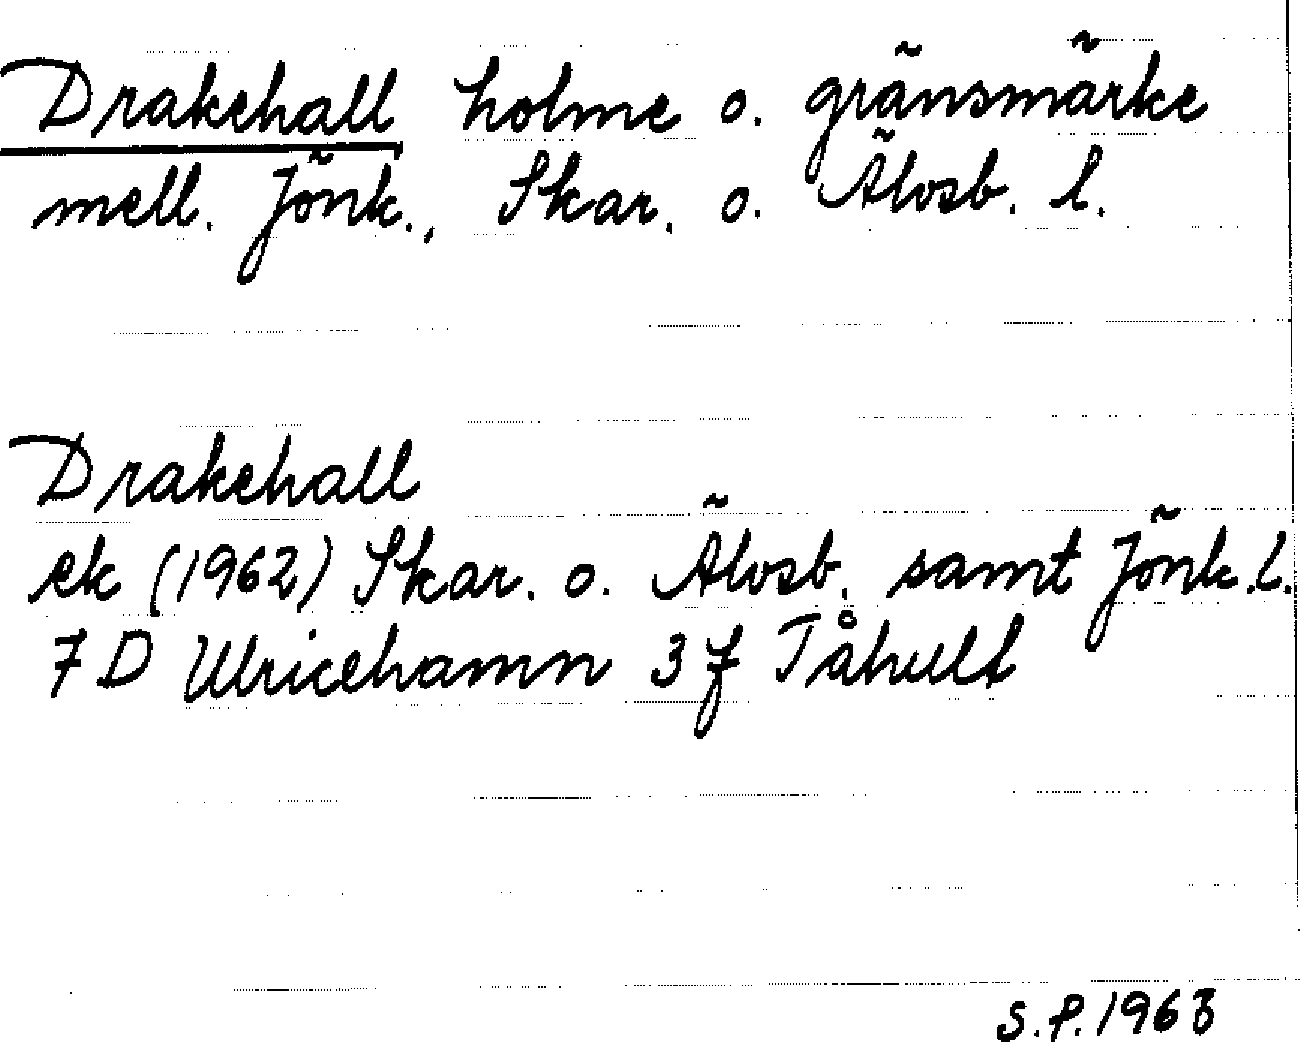 Drakehall holme o. gränsmärke
mell. Jönk., Skar. o. Älvsb. l.
Drakehall
ek (1962) Skar. o. Älvsb. samt Jönk.l.
7D Ulricehamn 3f Tåhult
S.P. 1963